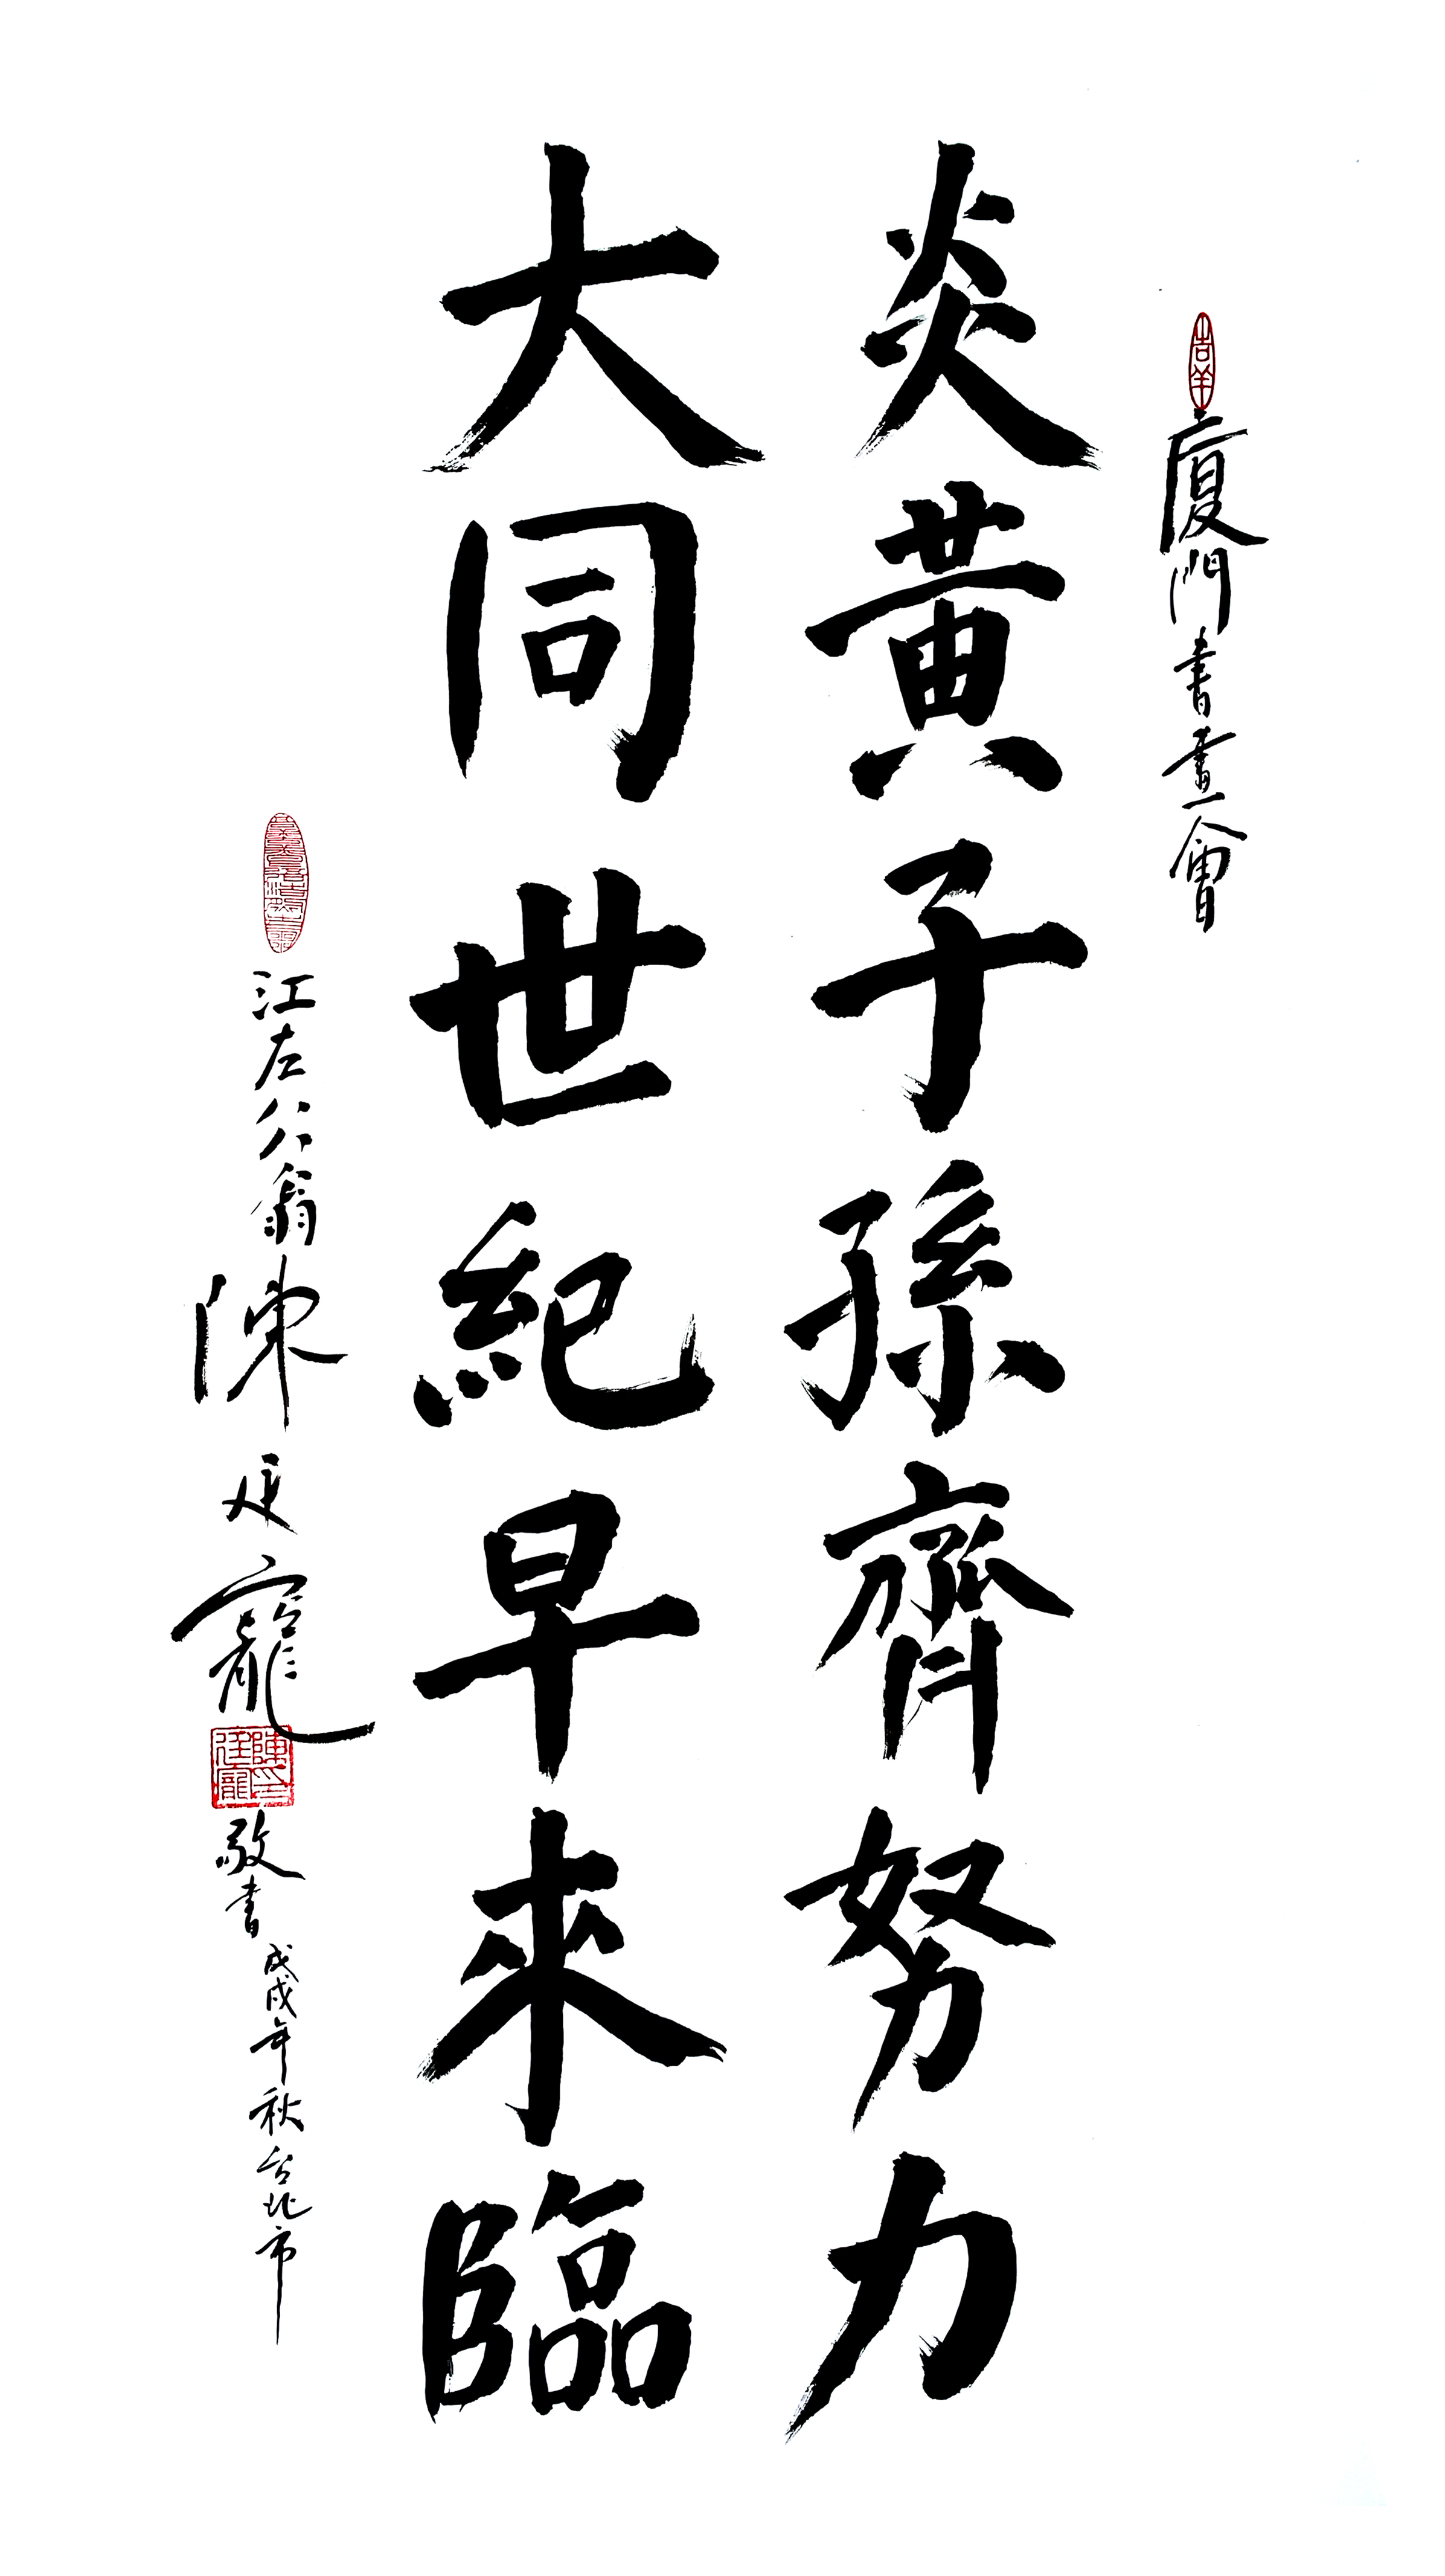 吉羊
廈門書畫會
炎黃子孫齊努力
大同世紀早來臨
江左八八翁陳廷寵敬書戊戌年秋台北市
陳廷寵印